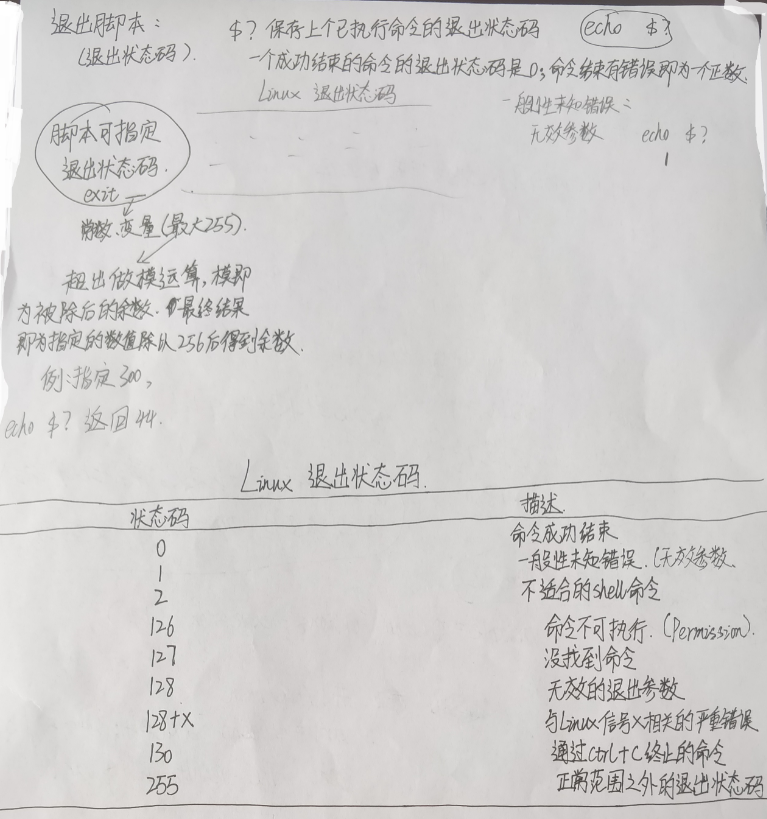 退出脚本：
（退出状态码）.
$? 保存上个已执行命令的退出状态码
echo $?
一个成功结束的命令的退出状态码是0；命令结束有错误即为一个正数.
Linux 退出状态码
一般性未知错误：
无效参数 echo $?
1
脚本可指定
退出状态码.
exit
常数、变量（最大255）.
超出做模运算，模即
为被除后的余数.最终结果
即为指定的数值除以256后得到余数.
例：指定300，
echo $? 返回44.
Linux 退出状态码.
状态码 描述.
0 命令成功结束
1 一般性未知错误.（无效参数.
2 不适合的shell命令
126 命令不可执行.（Permission）.
127 没找到命令
128 无效的退出参数
128+x 与Linux信号x相关的严重错误
130 通过Ctrl+C终止的命令
255 正常范围之外的退出状态码